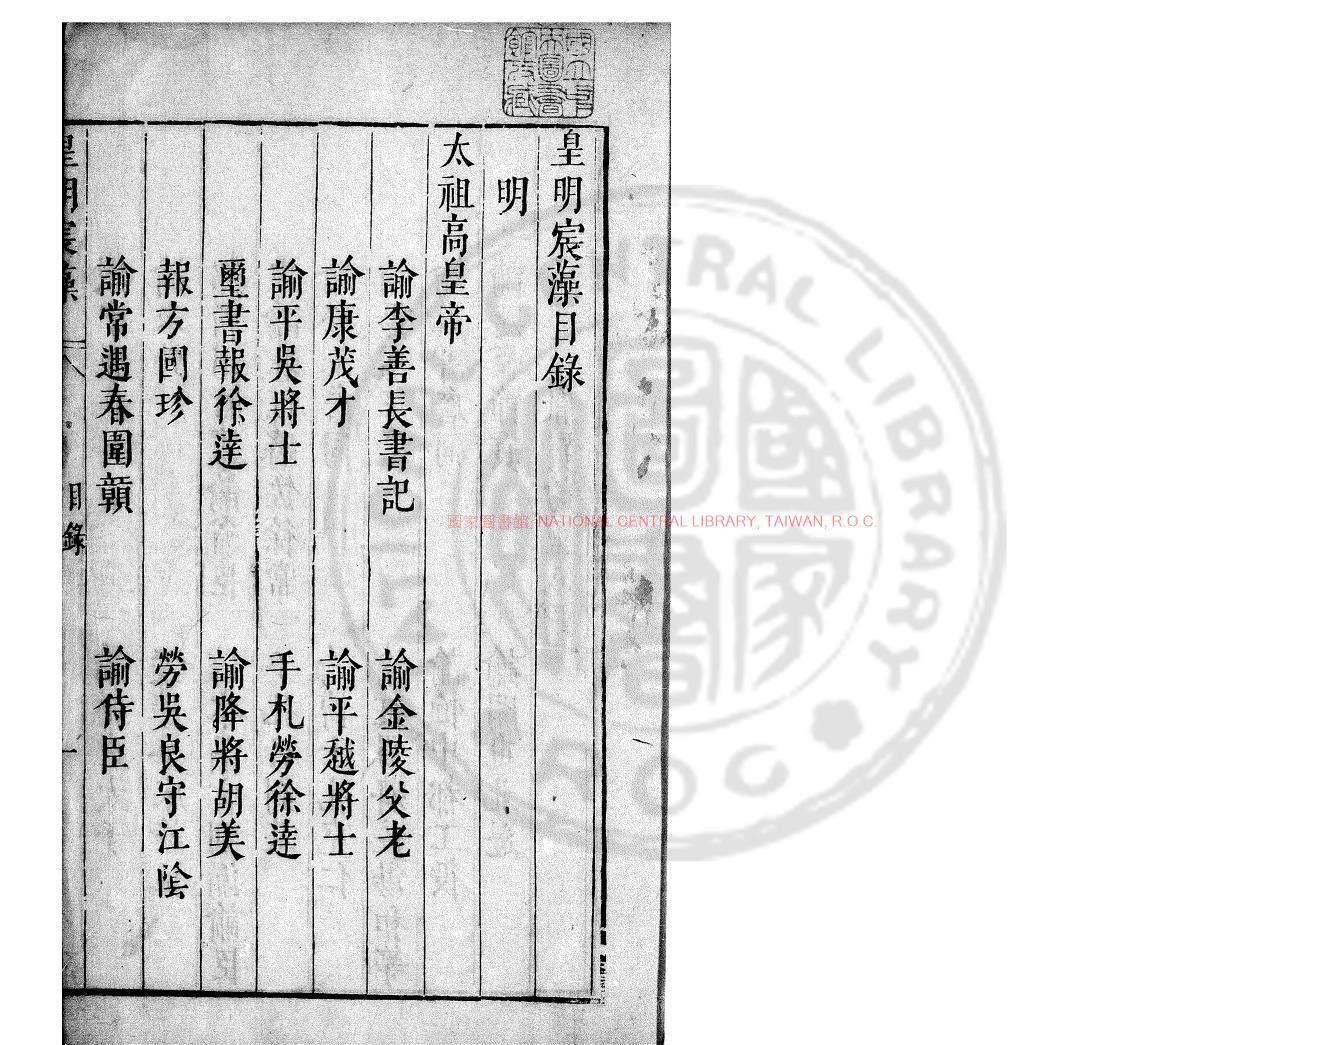 皇明宸藻目錄
明
太祖高皇帝
諭李善長書記
諭金陵父老
諭康茂才
諭平越將士
諭平吳將士
手札勞徐達
璽書報徐達
諭降將胡美
報方國珍
勞吳良守江陰
諭常遇春圍贛
諭侍臣
皇明宸藻
目錄
一
國立中央圖書館收藏
國家圖書館, NATIONAL CENTRAL LIBRARY, TAIWAN, R.O.C.
CENTRAL LIBRARY
ROC